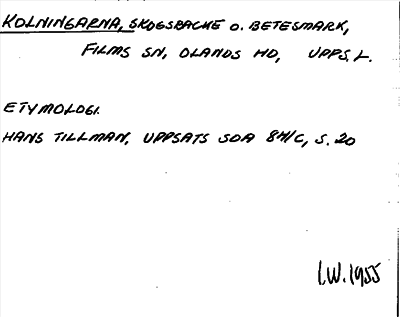 KOLNINGARNA, SKOGSBACKE O. BETESMARK,
FILMS SN, OLANDS HD, UPPS. L.
ETYMOLOGI.
HANS TILLMAN, UPPSATS SOA 84/C, S. 20
I.W. 1955